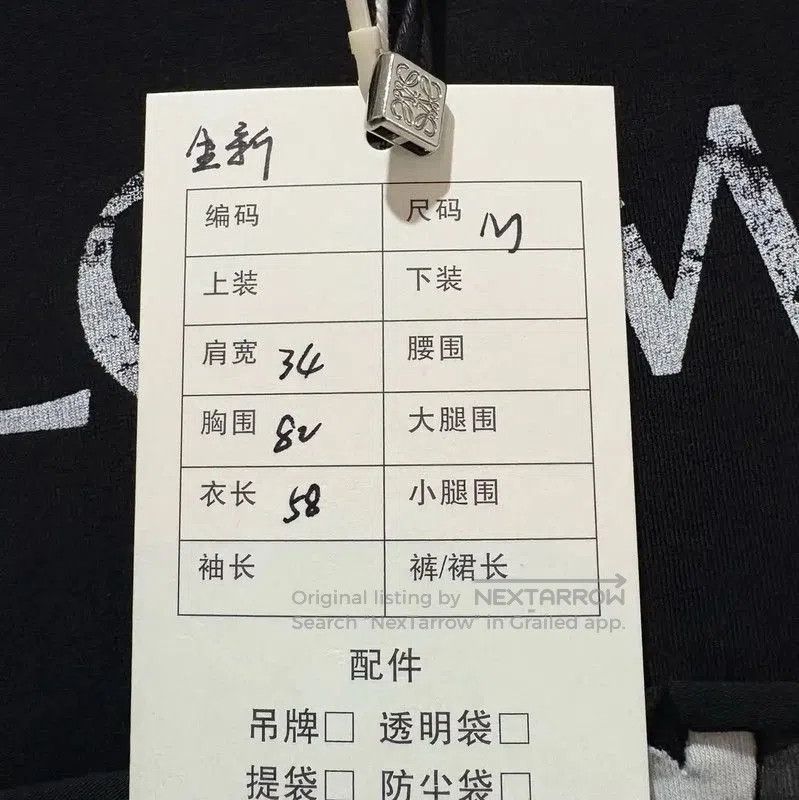 全新
编码 尺码 M
上装 下装
肩宽 34 腰围
胸围 82 大腿围
衣长 58 小腿围
袖长 裤/裙长
Original listing by NEXTARROW
Search "NexTarrow" in Grailed app.
配件
吊牌□ 透明袋□
提袋□ 防尘袋□